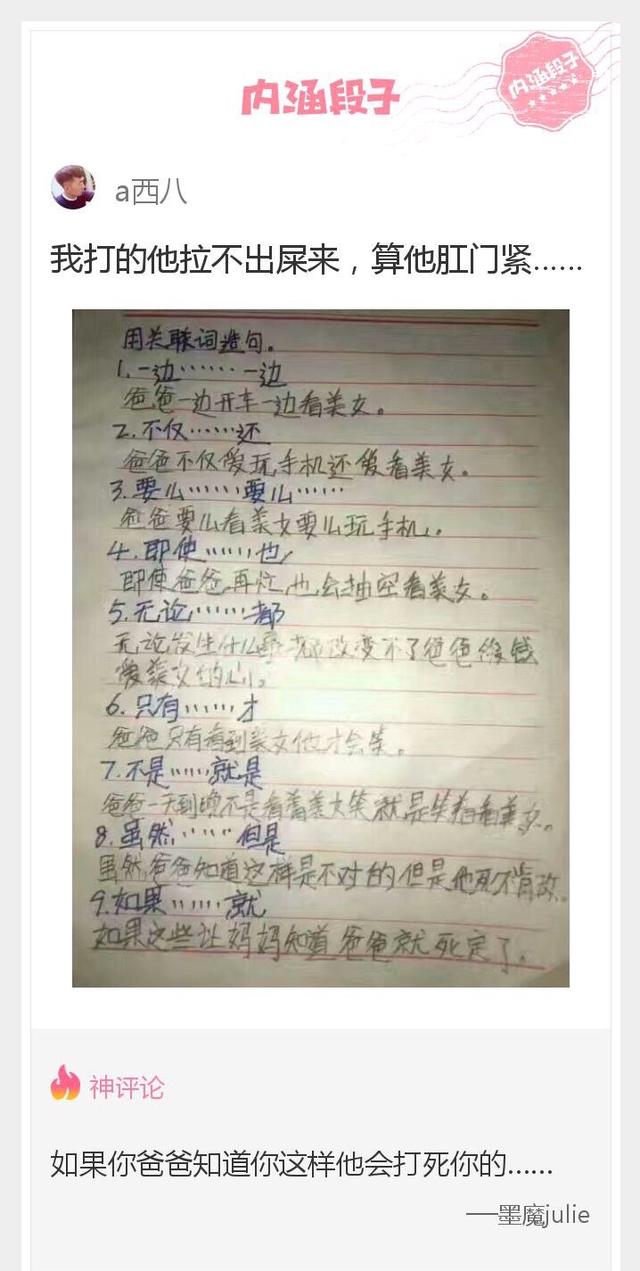 内涵段子
内涵段子
a西八
我打的他拉不出屎来，算他肛门紧……
用关联词造句。
1.一边……一边
爸爸一边开车一边看美女。
2.不仅……还
爸爸不仅爱玩手机还爱看美女。
3.要么……要么……
爸爸要么看美女要么玩手机。
4.即使……也
即使爸爸再忙,也会抽空看美女。
5.无论……都
无论发生什么事都改变不了爸爸 钱
爱美女的心。
6.只有……才
爸爸只有看到美女他才会笑。
7.不是……就是
爸爸一天到晚不是看着美女笑就是笑着看美女。
8.虽然……但是
虽然爸爸知道这样是不对的但是他死不肯改。
9.如果……就
如果这些让妈妈知道爸爸就死定了。
神评论
如果你爸爸知道你这样他会打死你的……
──墨魔julie